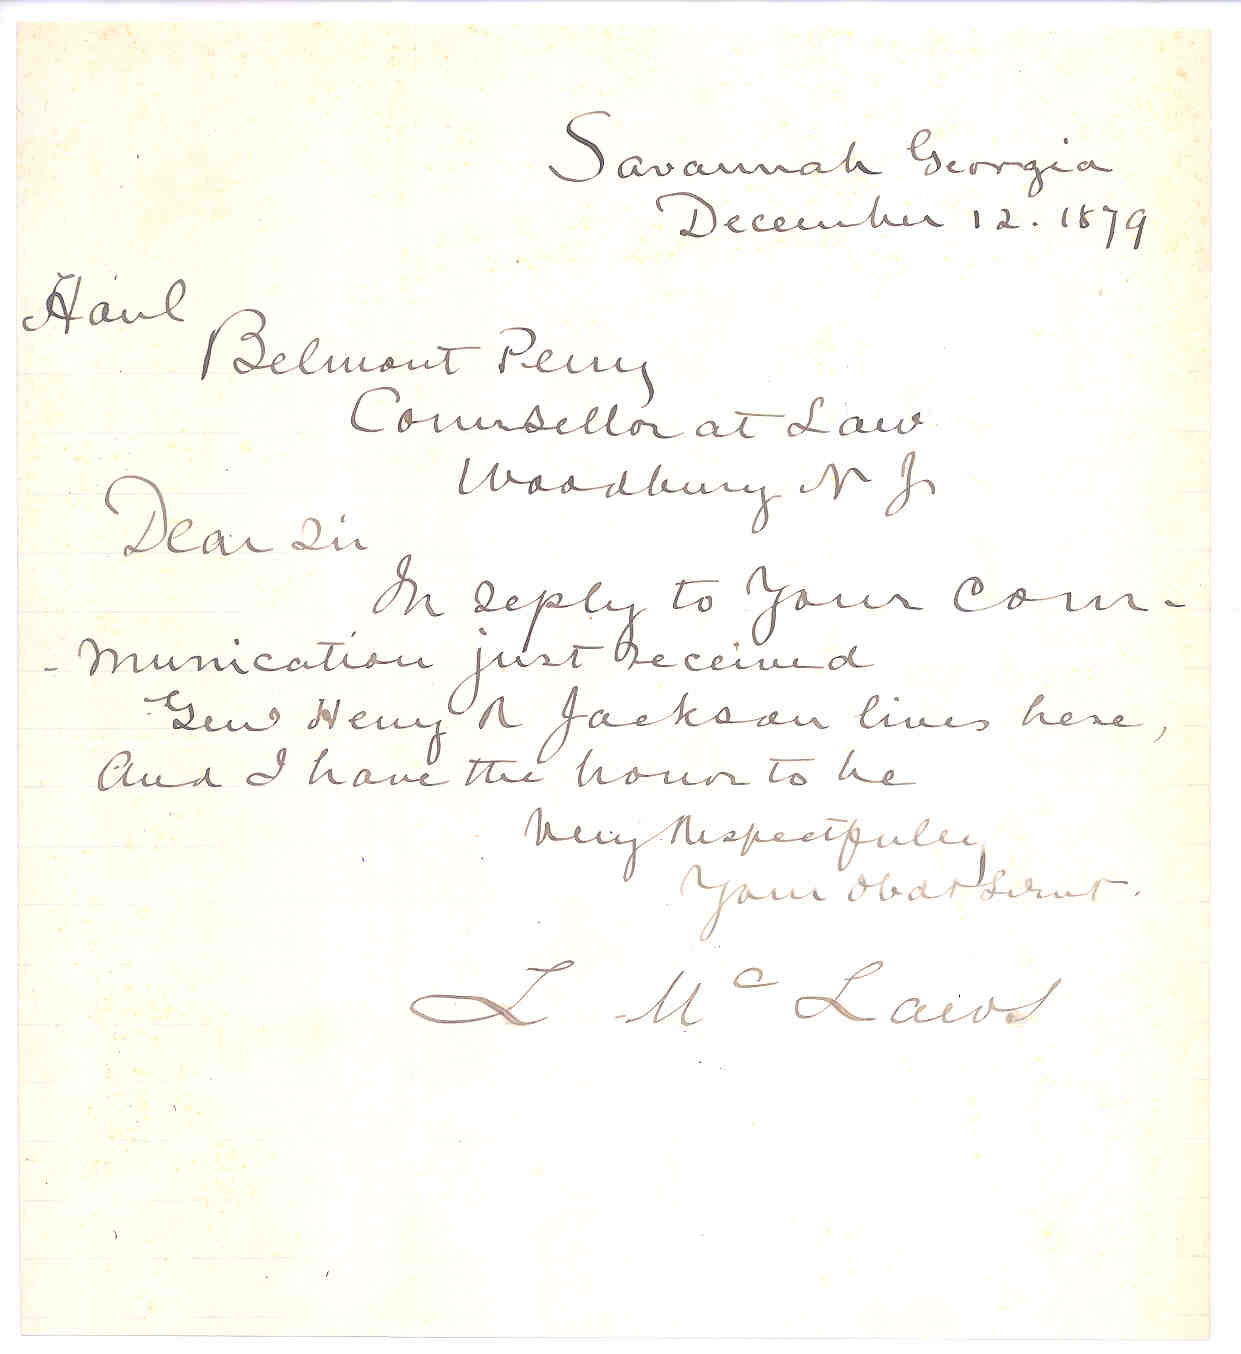 Savannah Georgia
December 12. 1879
Honl
Belmont Perry
Counsellor at Law
Woodbury N J
Dear Sir
In reply to Your Com-
-munication just received
Genl Henry R Jackson lives here,
And I have the honor to be
Very Respectfully
Your Obdt Servt.
L McLaws